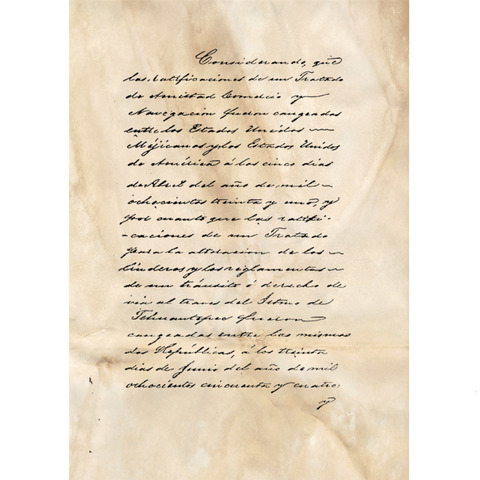 Considerando, que
las ratificaciones de un Tratado
de Amistad Comercio y
Navegacion fueron cangeadas
entre los Estados Unidos
Méjicanos y los Estados Unidos
de América á los cinco dias
de Abril del año de mil
ochocientos treinta y uno, y
por cuanto que las ratifi-
-caciones de un Tratado
para la alteracion de los
linderos y los reglamentos
de un tránsito ó derecho de
via al traves del Istmo de
Tehuantepec fueron
cangeadas entre las mismas
dos Repúblicas, á los treinta
dias de Junio del año de mil
ochocientos cincuenta y cuatro;
y